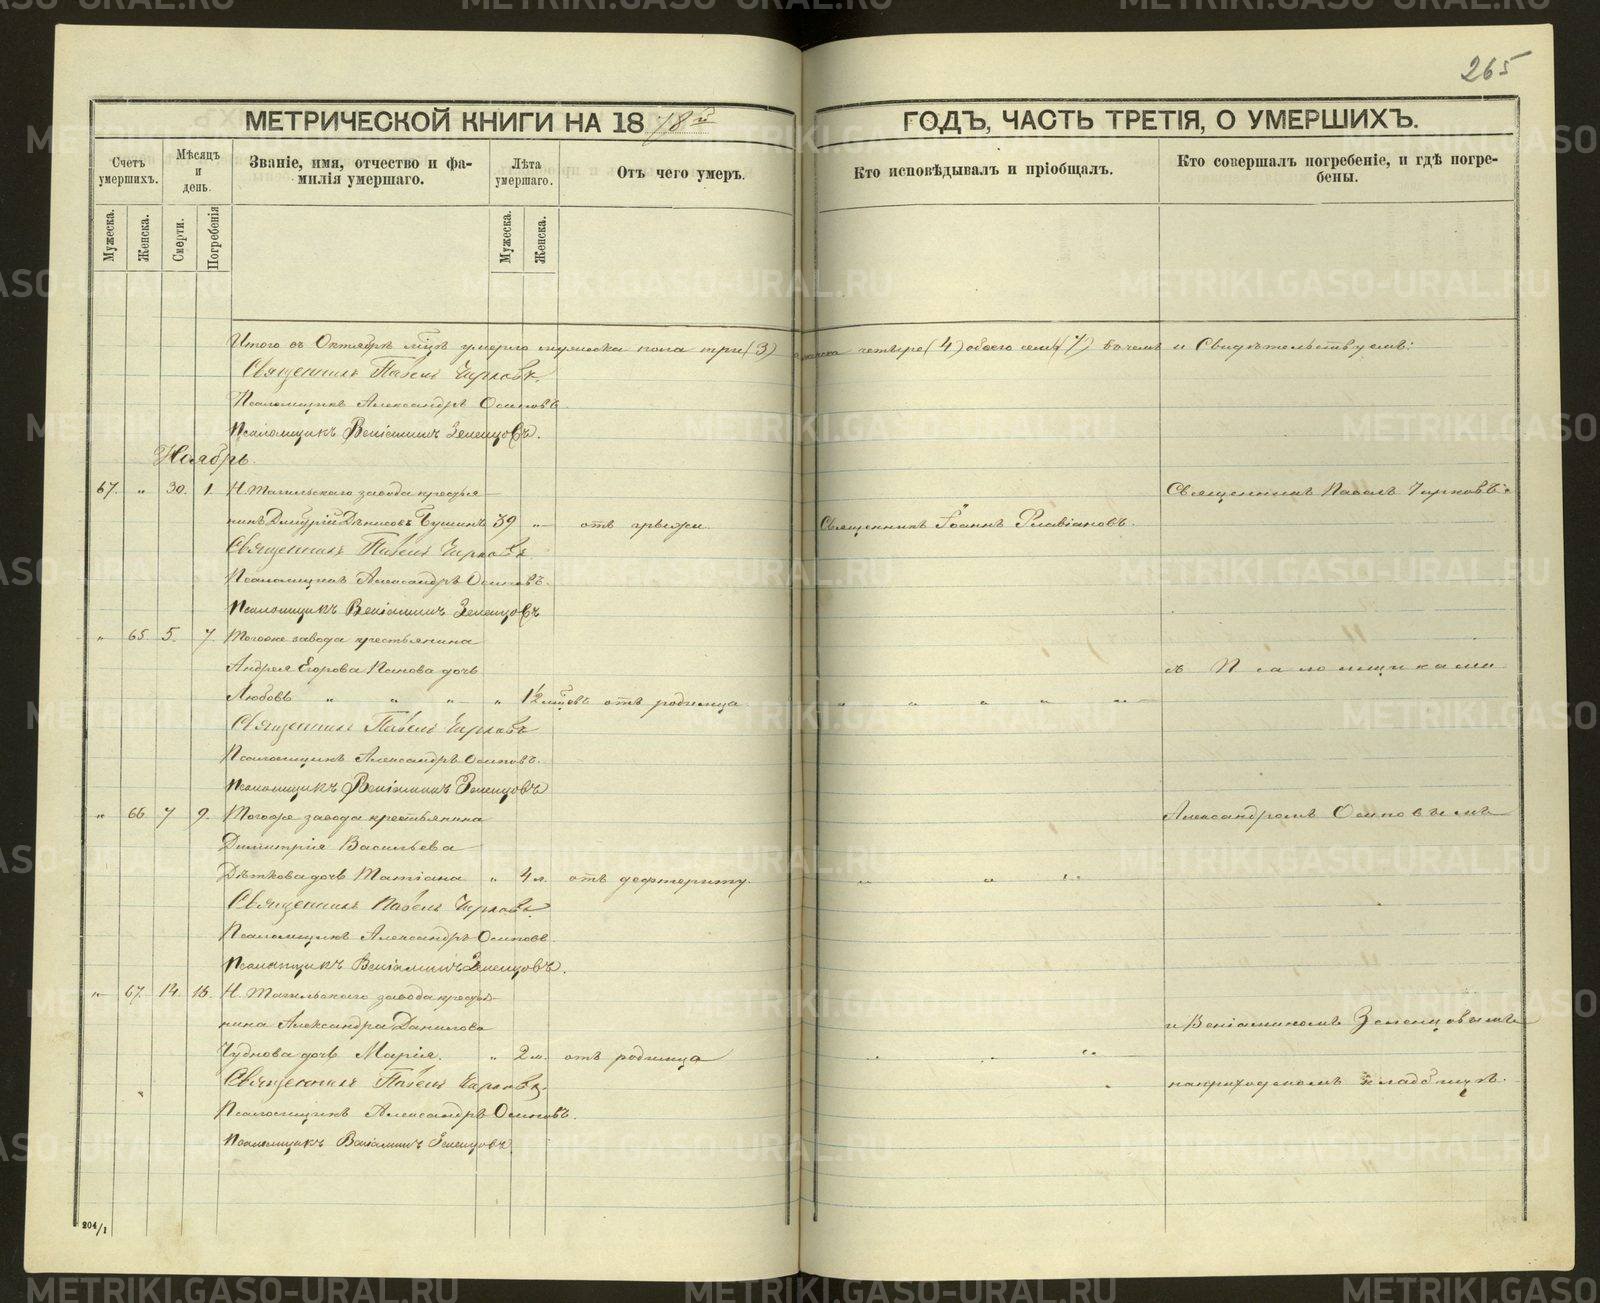 265
МЕТРИЧЕСКОЙ КНИГИ НА 1878й ГОДЪ, ЧАСТЬ ТРЕТІЯ, О УМЕРШИХЪ.
Счетъ умершихъ.
Мѣсяцъ и день.
Званіе, имя, отчество и фамилія умершаго.
Лѣта умершаго.
Отъ чего умеръ.
Кто исповѣдывалъ и пріобщалъ.
Кто совершалъ погребеніе, и гдѣ погребены.
Мужеска.
Женска.
Смерти.
Погребенія
Мужеска.
Женска.
Итого въ Октябрѣ мцѣ умерло мужеска пола три (3) женска четыре (4) обоего семь (7) въ чемъ и Свидѣтельствуемъ:
Священникъ Павелъ Чирковъ.
Псаломщикъ Александръ Осиповъ
Псаломщикъ Веніаминъ Земенцовъ.
Ноябрь.
67. " 30. 1. Н. Тагильскаго завода крестья-
Священникъ Павелъ Чирковъ
нинъ Дмитрій Денисовъ 39 " отъ грыжи. Священникъ Іоаннъ Флавіановъ.
Священникъ Павелъ Чирковъ.
Псаломщикъ Александръ Осиповъ.
Псаломщикъ Веніаминъ Земенцовъ
" 65 5. 7. Тогоже завода крестьянина
Андрея Егорова Попова дочь
съ Псаломщиками
Любовь " " " " 1½ мцовъ отъ родимца. " " " " "
Священникъ Павелъ Чирковъ
Псаломщикъ Александръ Осиповъ.
Псаломщикъ Веніаминъ Земенцовъ
" 66 7 9. Тогоже завода крестьянина
Александромъ Осиповымъ
Димитрія Васильева
дочь Татіана " 4 л. отъ дефтериту. " " "
Священникъ Павелъ Чирковъ.
Псаломщикъ Александръ Осиповъ.
Псаломщикъ Веніаминъ Земенцовъ.
" 67. 14. 16. Н. Тагильскаго завода крестья-
нина Александра Данилова
и Веніаминомъ Земенцовымъ
Чуднова дочь Марія. " 2 м. отъ родимца " " "
Священникъ Павелъ Чирковъ.
на приходскомъ кладбищѣ.
Псаломщикъ Александръ Осиповъ.
Псаломщикъ Веніаминъ Земенцовъ.
204/1
METRIKI.GASO-URAL.RU